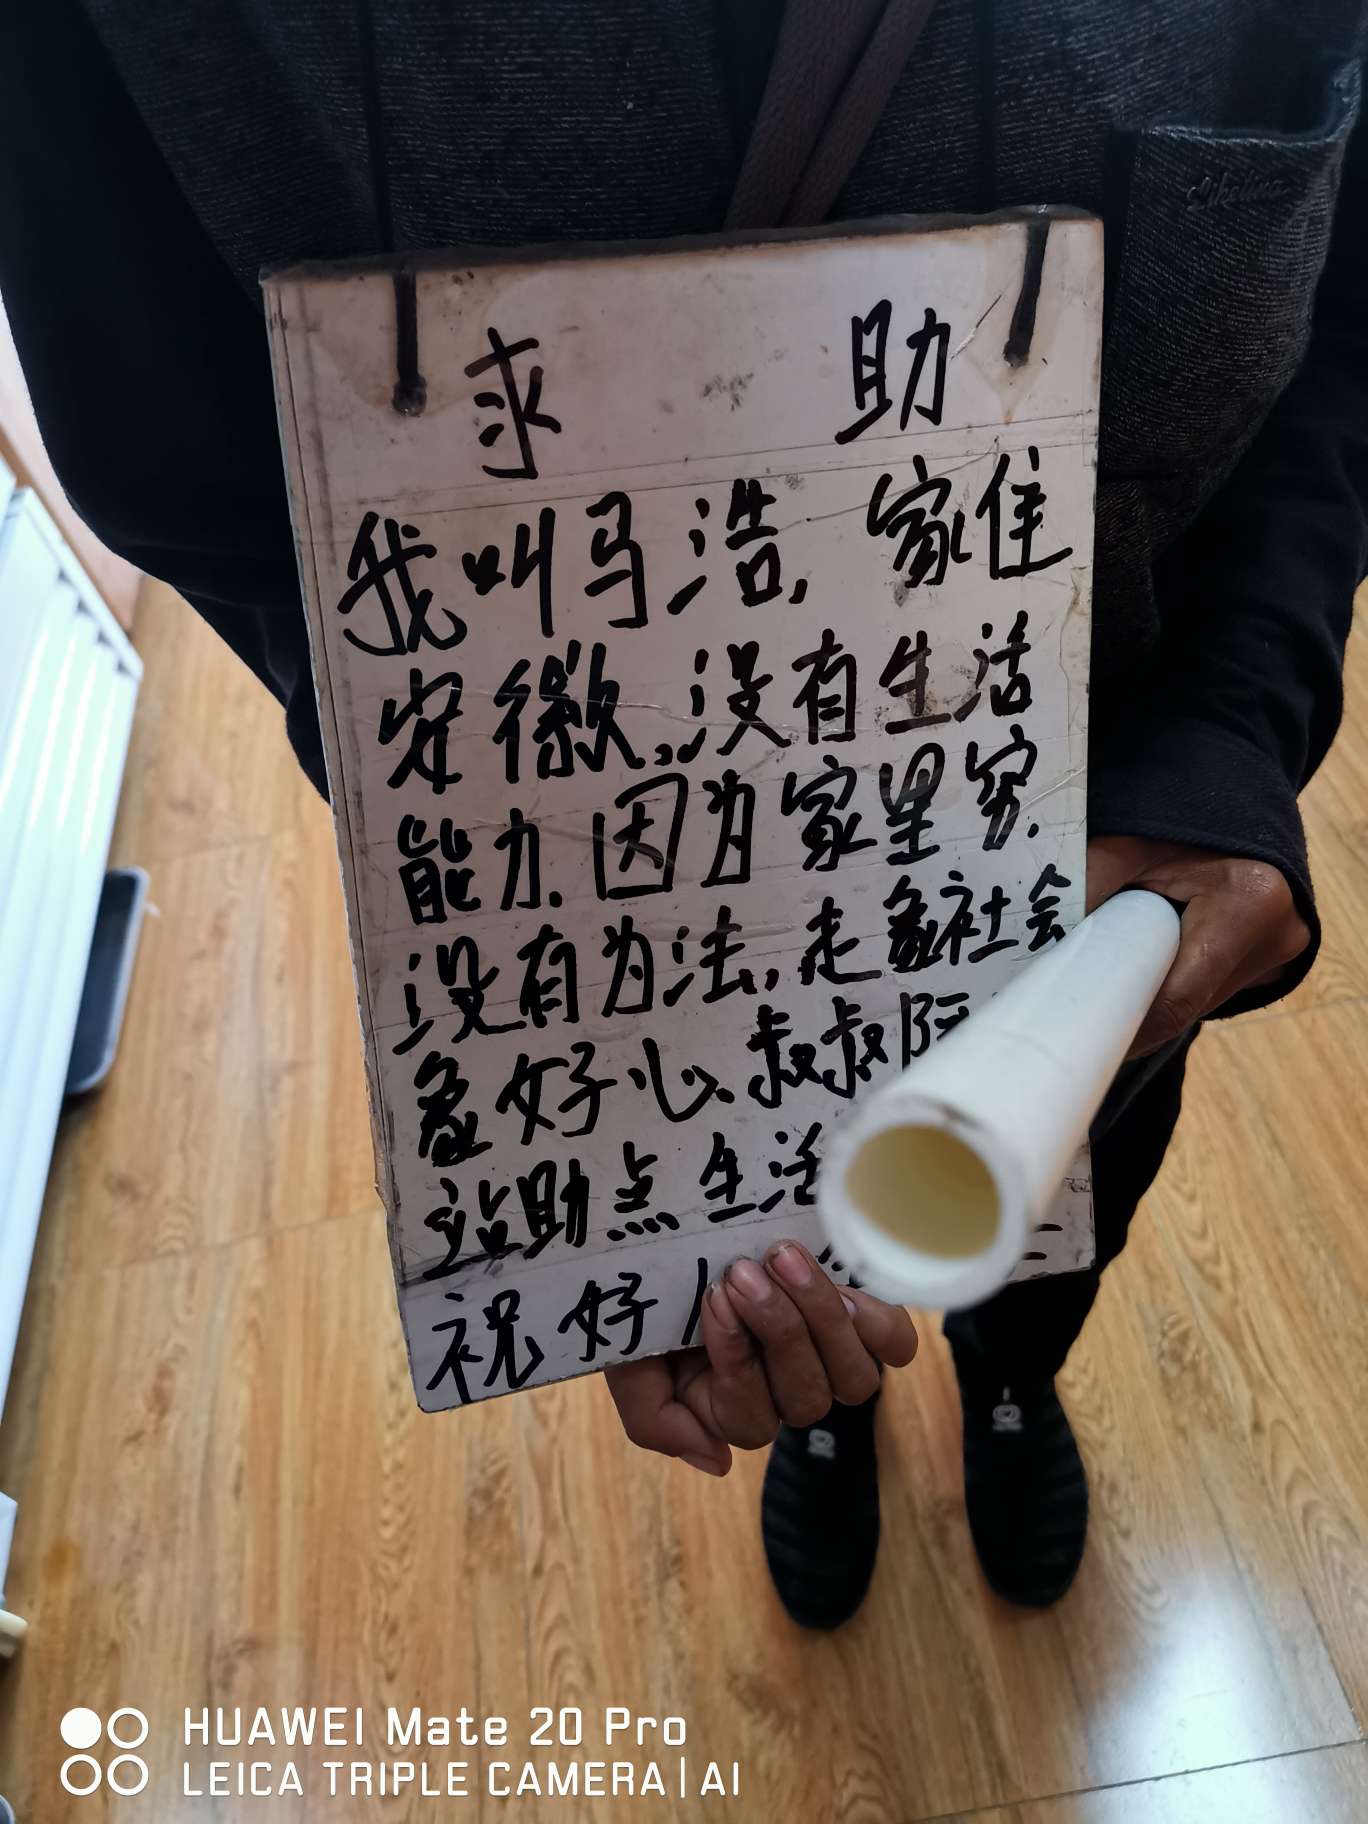 求 助
我叫马浩,家住
安徽,没有生活
能力.因为家里穷.
没有为法,走象社会
象好心叔叔阿
站助点生活
祝好
HUAWEI Mate 20 Pro
LEICA TRIPLE CAMERA | AI